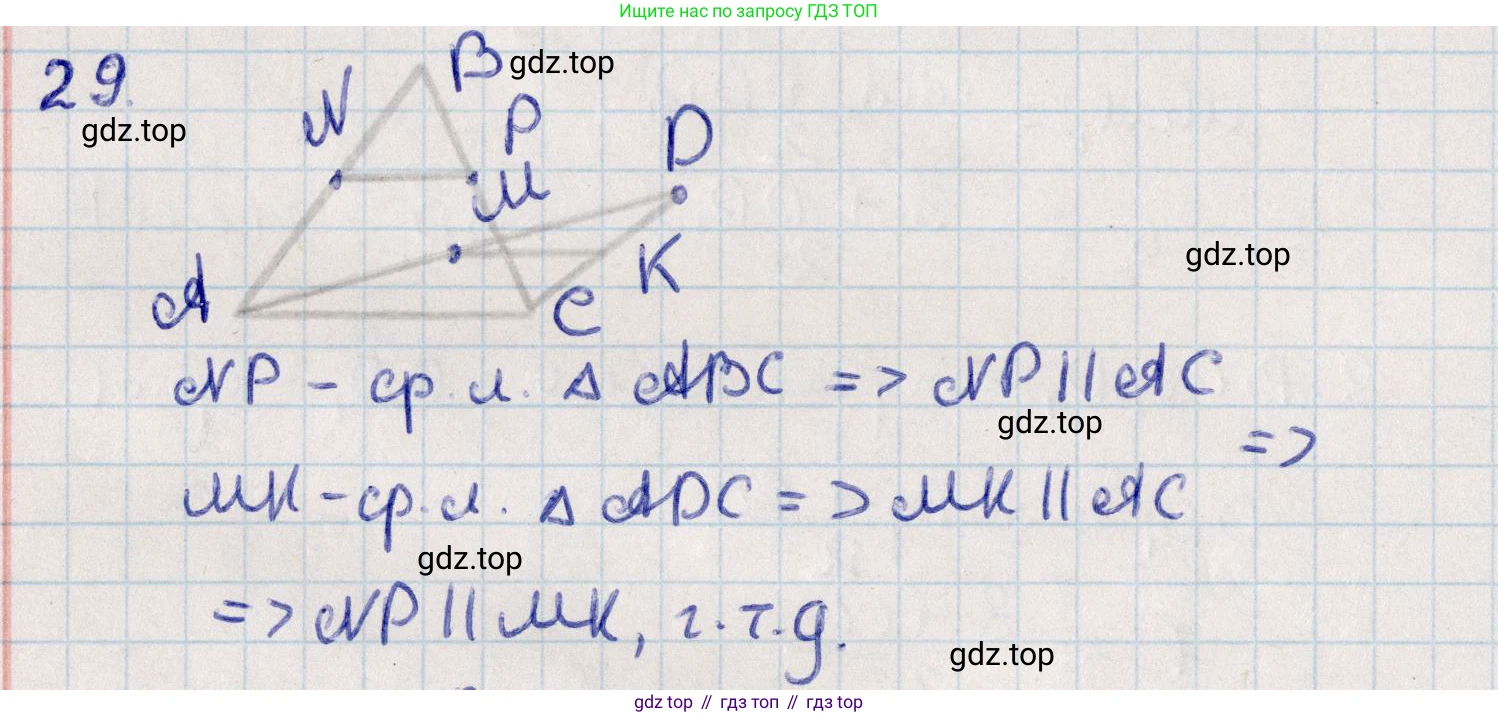 Ищите нас по запросу ГДЗ ТОП
29.
B gdz.top
N
P
D
gdz.top
M
gdz.top
K
A
C
NP - ср. л. Δ ABC => NP || AC
gdz.top
=>
MK - ср. л. Δ ADC => MK || AC
gdz.top
=> NP || MK, г.т.д.
gdz.top
gdz top // гдз топ // гдз top